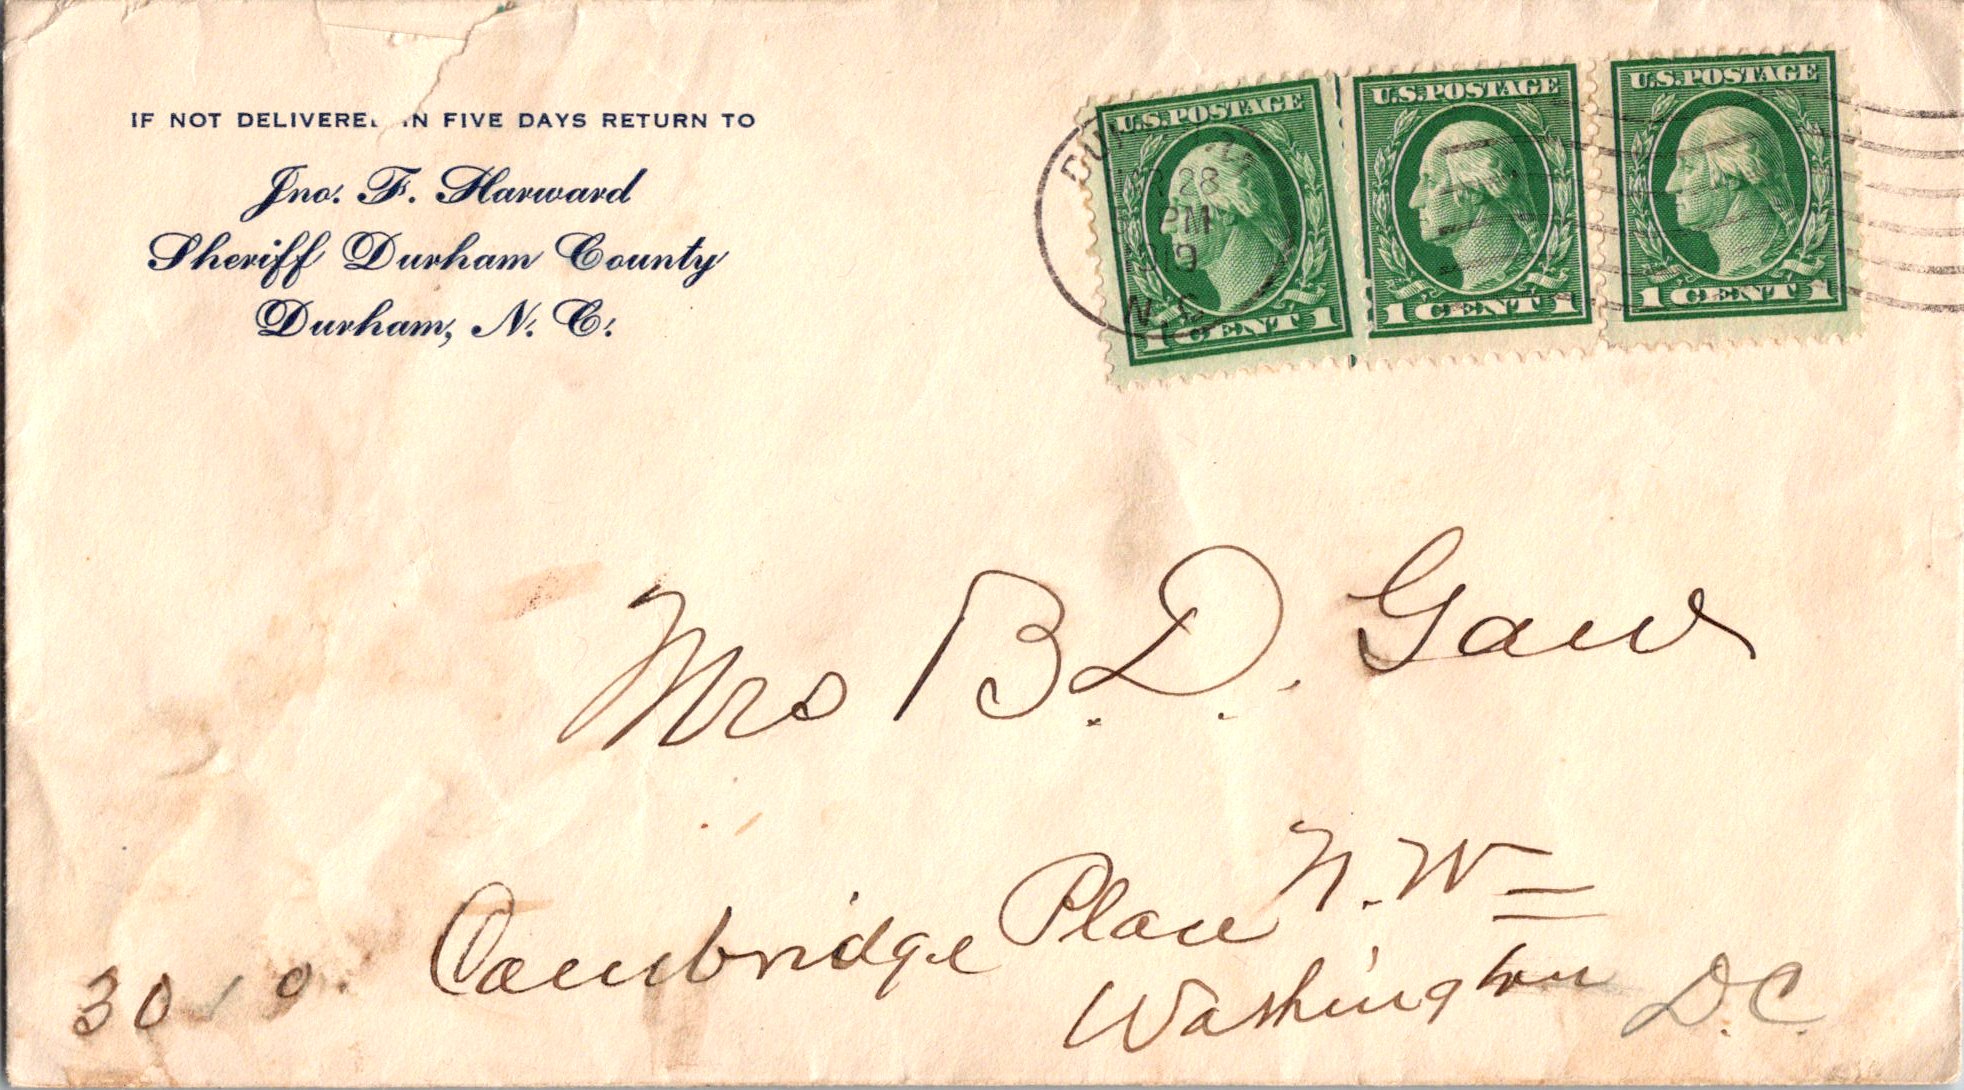 IF NOT DELIVERED IN FIVE DAYS RETURN TO
Jno. F. Harward
Sheriff Durham County
Durham, N. C.
U.S. POSTAGE
1 CENT 1
U.S. POSTAGE
1 CENT 1
U.S. POSTAGE
1 CENT 1
28
PM
1919
N.C.
Mrs B. D. Gaw
3010. Cambridge Place N.W
Washington D.C.